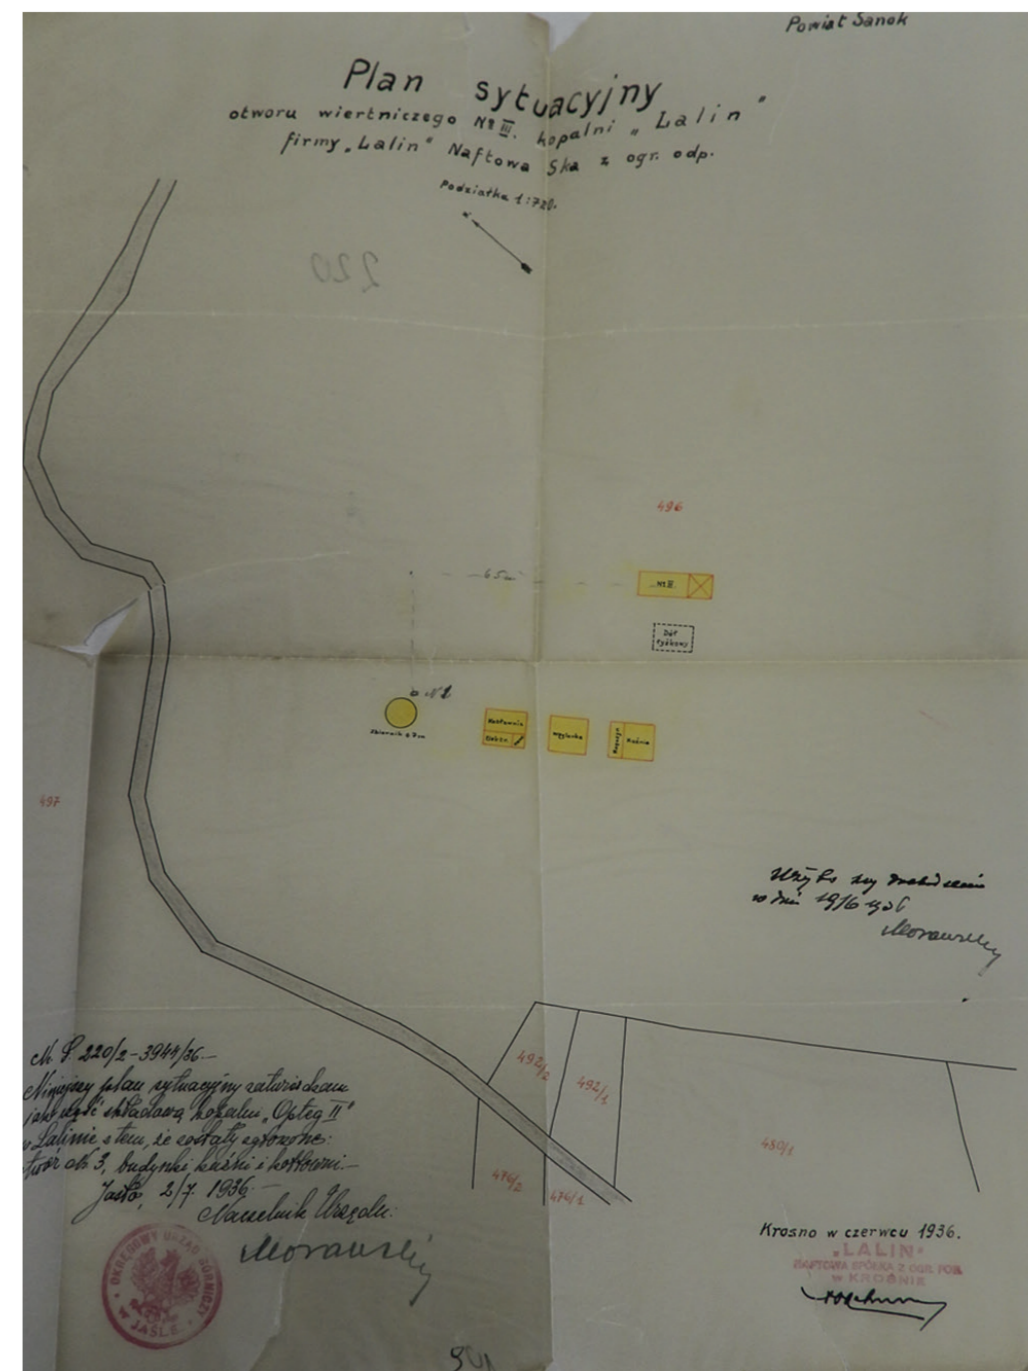 Powiat Sanok
Plan sytuacyjny
otworu wiertniczego № III. kopalni „Lalin”
firmy „Lalin” Naftowa Ska z ogr. odp.
Podziałka 1:720.
220
496
65m
Dół
łyżkowy
Zbiornik
Kotłownia
Węglarka
Magazyn
Kuźnia
497
w dniu 19/6 1936
Morawski
492/2
492/1
480/1
476/2
476/1
220/2-3944/36
Niniejszy plan sytuacyjny zatwierdzam
jako część składową kopalni „Opteg II”
w Lalinie z tem, że zostały zgłoszone:
otwór № 3, budynki kuźni i kotłowni.
Jasło, 2/7. 1936.
Naczelnik Urzędu:
Morawski
OKRĘGOWY URZĄD GÓRNICZY
W JAŚLE
Krosno w czerwcu 1936.
„LALIN”
NAFTOWA SPÓŁKA Z OGR. POR.
w KROŚNIE